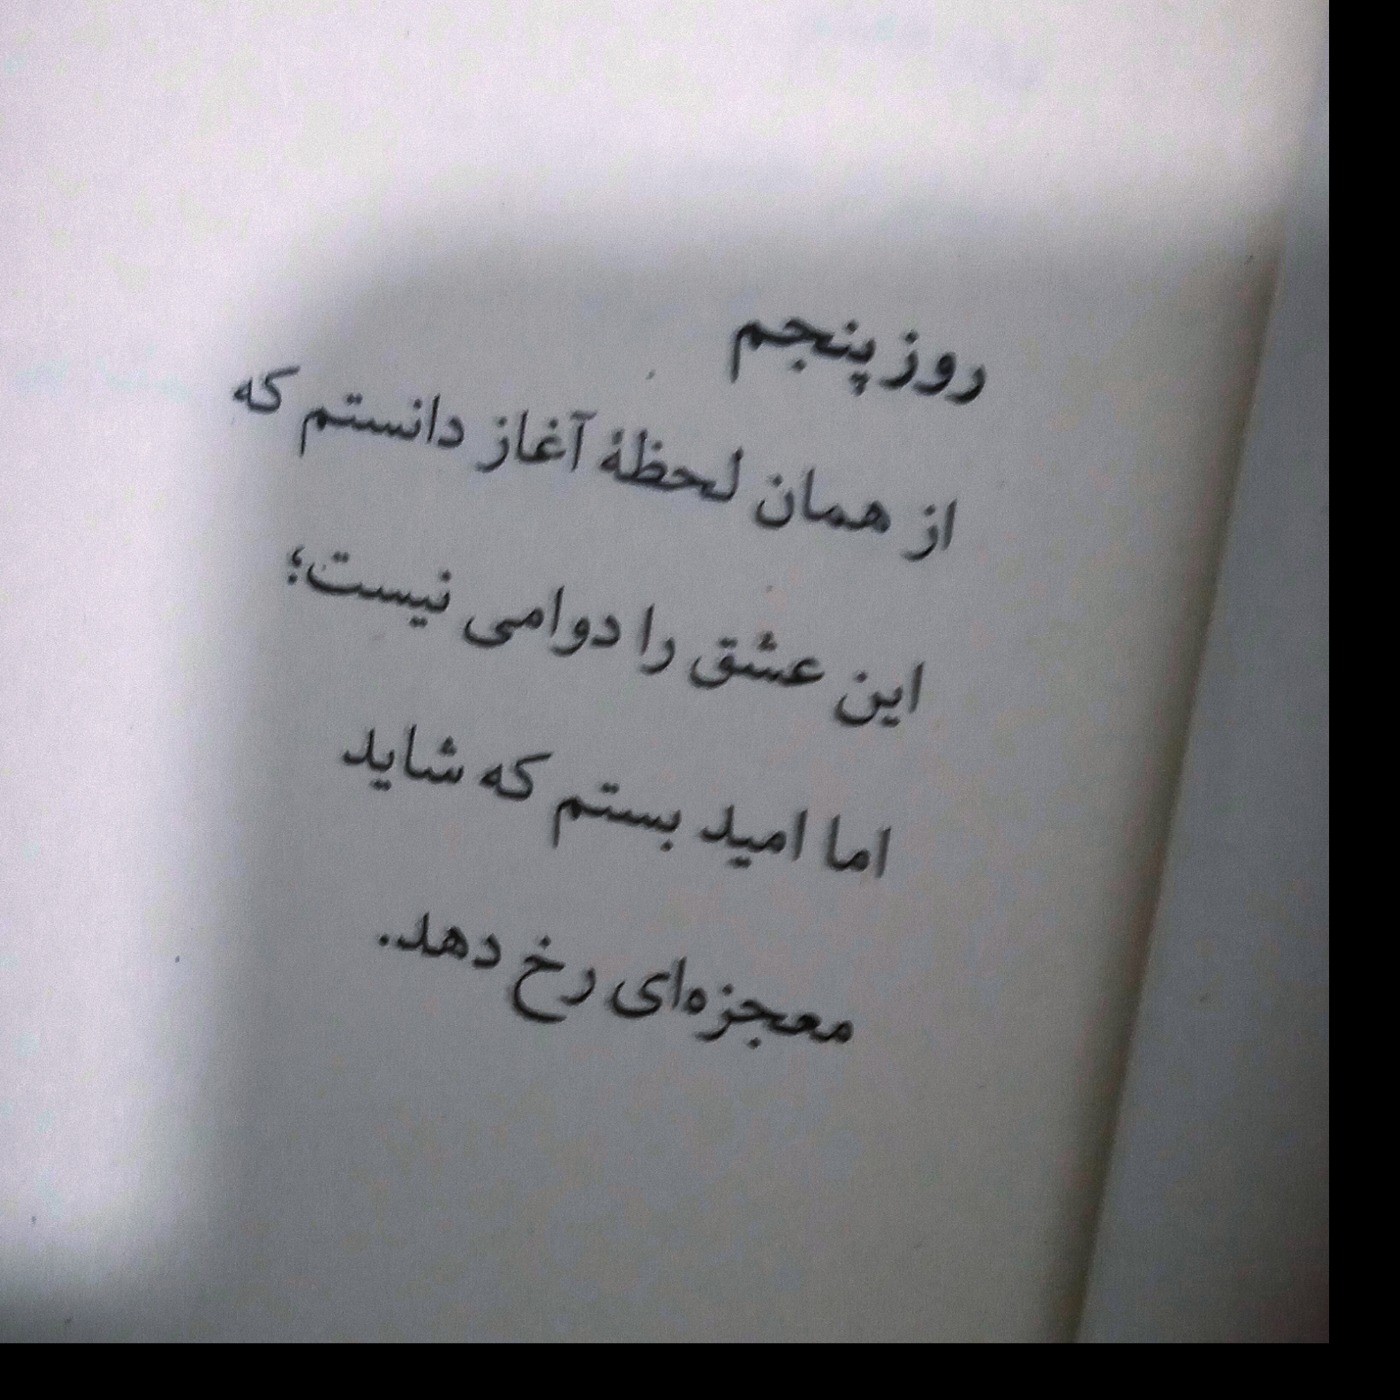 روز پنجم
از همان لحظهٔ آغاز دانستم که
این عشق را دوامی نیست؛
اما امید بستم که شاید
معجزه‌ای رخ دهد.